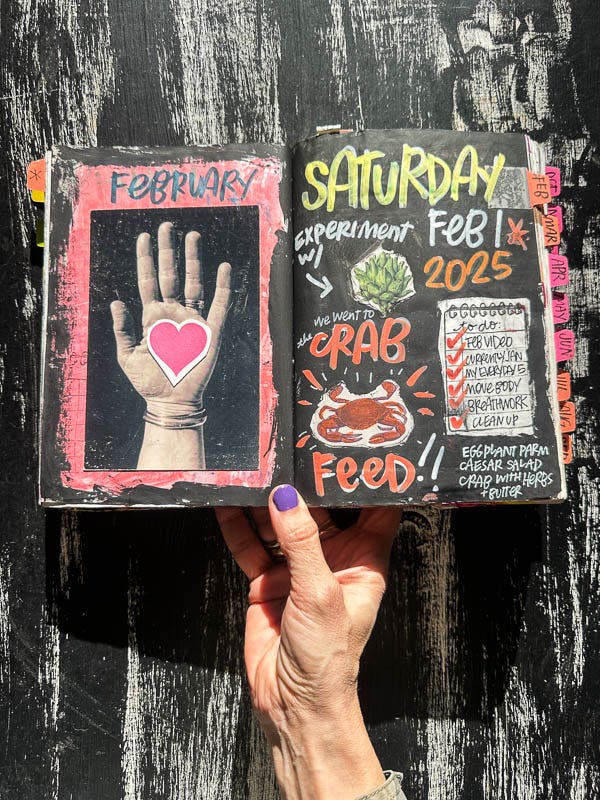 FEBRUARY
SATURDAY
FEB 1
2025
EXPERIMENT
W/
we went to
the CRAB
FEED!!
to do:
FEB VIDEO
CURRENTLY JAN
MY EVERYDAY 5
MOVE BODY
BREATHWORK
CLEAN UP
EGGPLANT PARM
CAESAR SALAD
CRAB WITH HERBS
+ BUTTER
FEB
MAR
APR
MAY
JUN